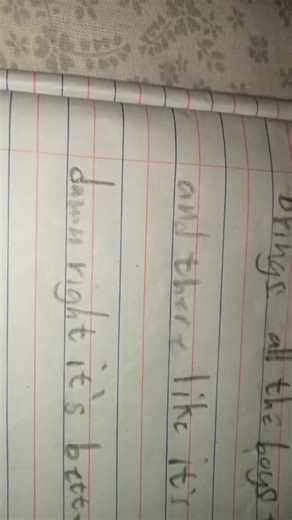 Brings all the boys
and there like it's
damn right it's bett